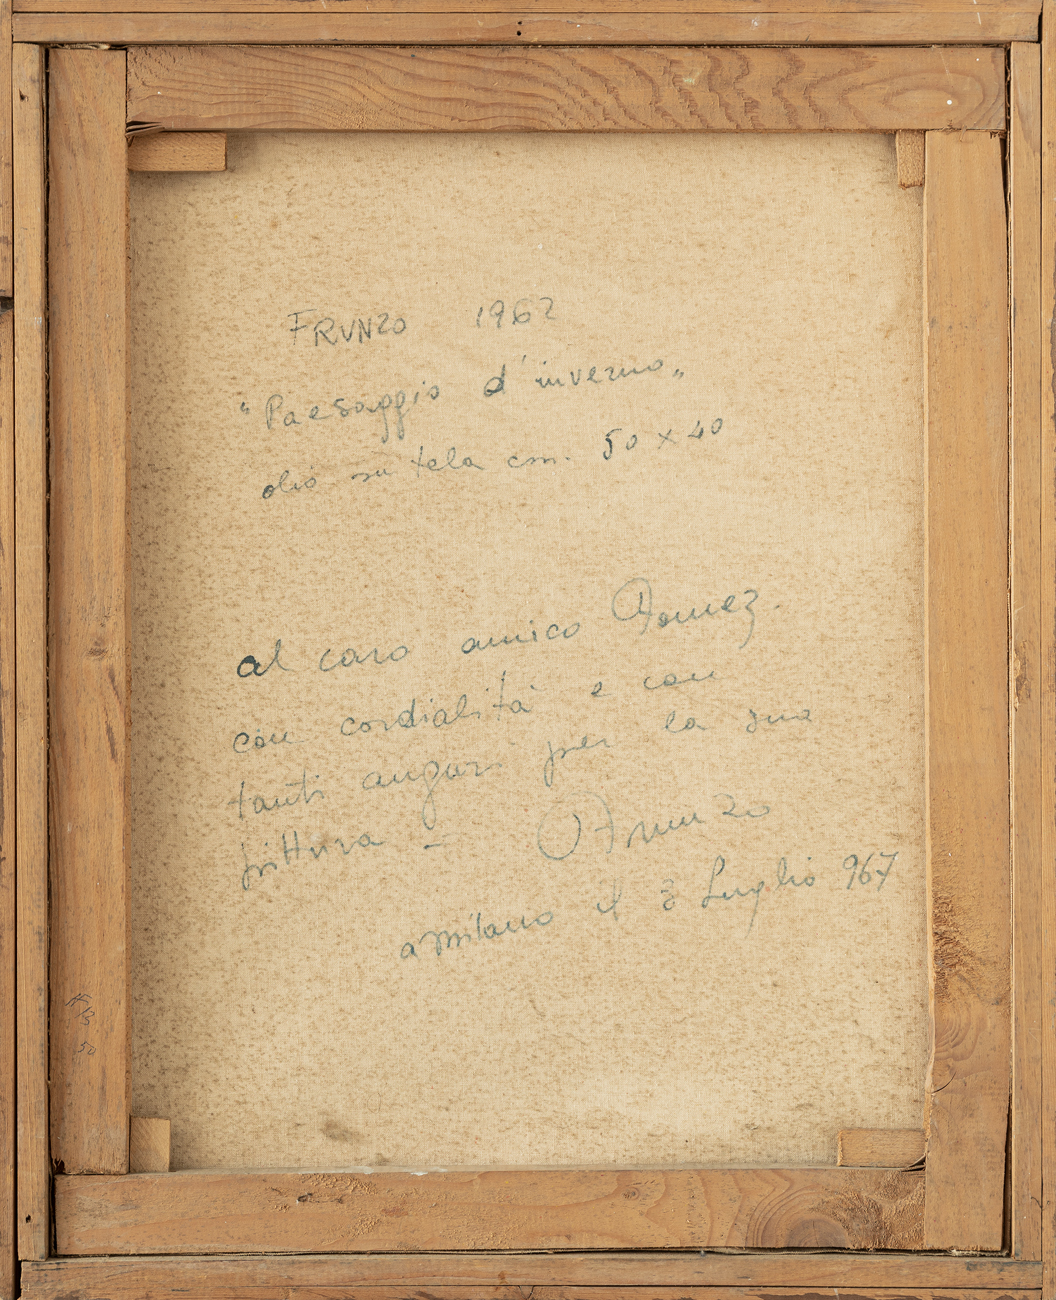 FRUNZO 1962
"Paesaggio d'inverno"
olio su tela cm. 50 x 40
al caro amico
con cordialità e con
tanti auguri per la sua
pittura - Frunzo
a Milano il 3 Luglio 967
50